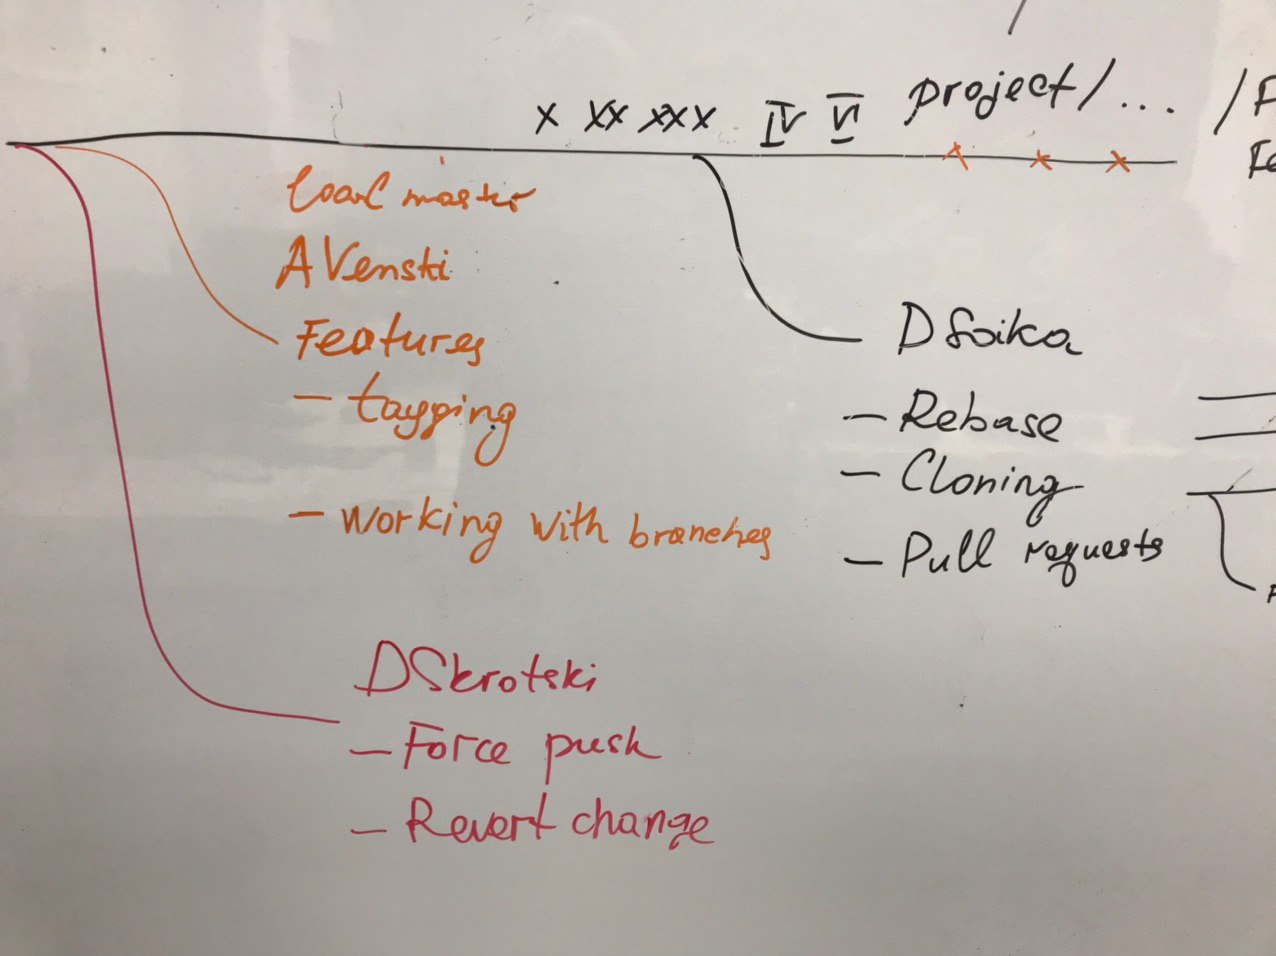 X XX XXX IV V project/... /F
local master
AVenski
Features
- tagging
- working with branches
DSoika
- Rebase
- Cloning
- Pull requests
DSkrotski
- Force push
- Revert change